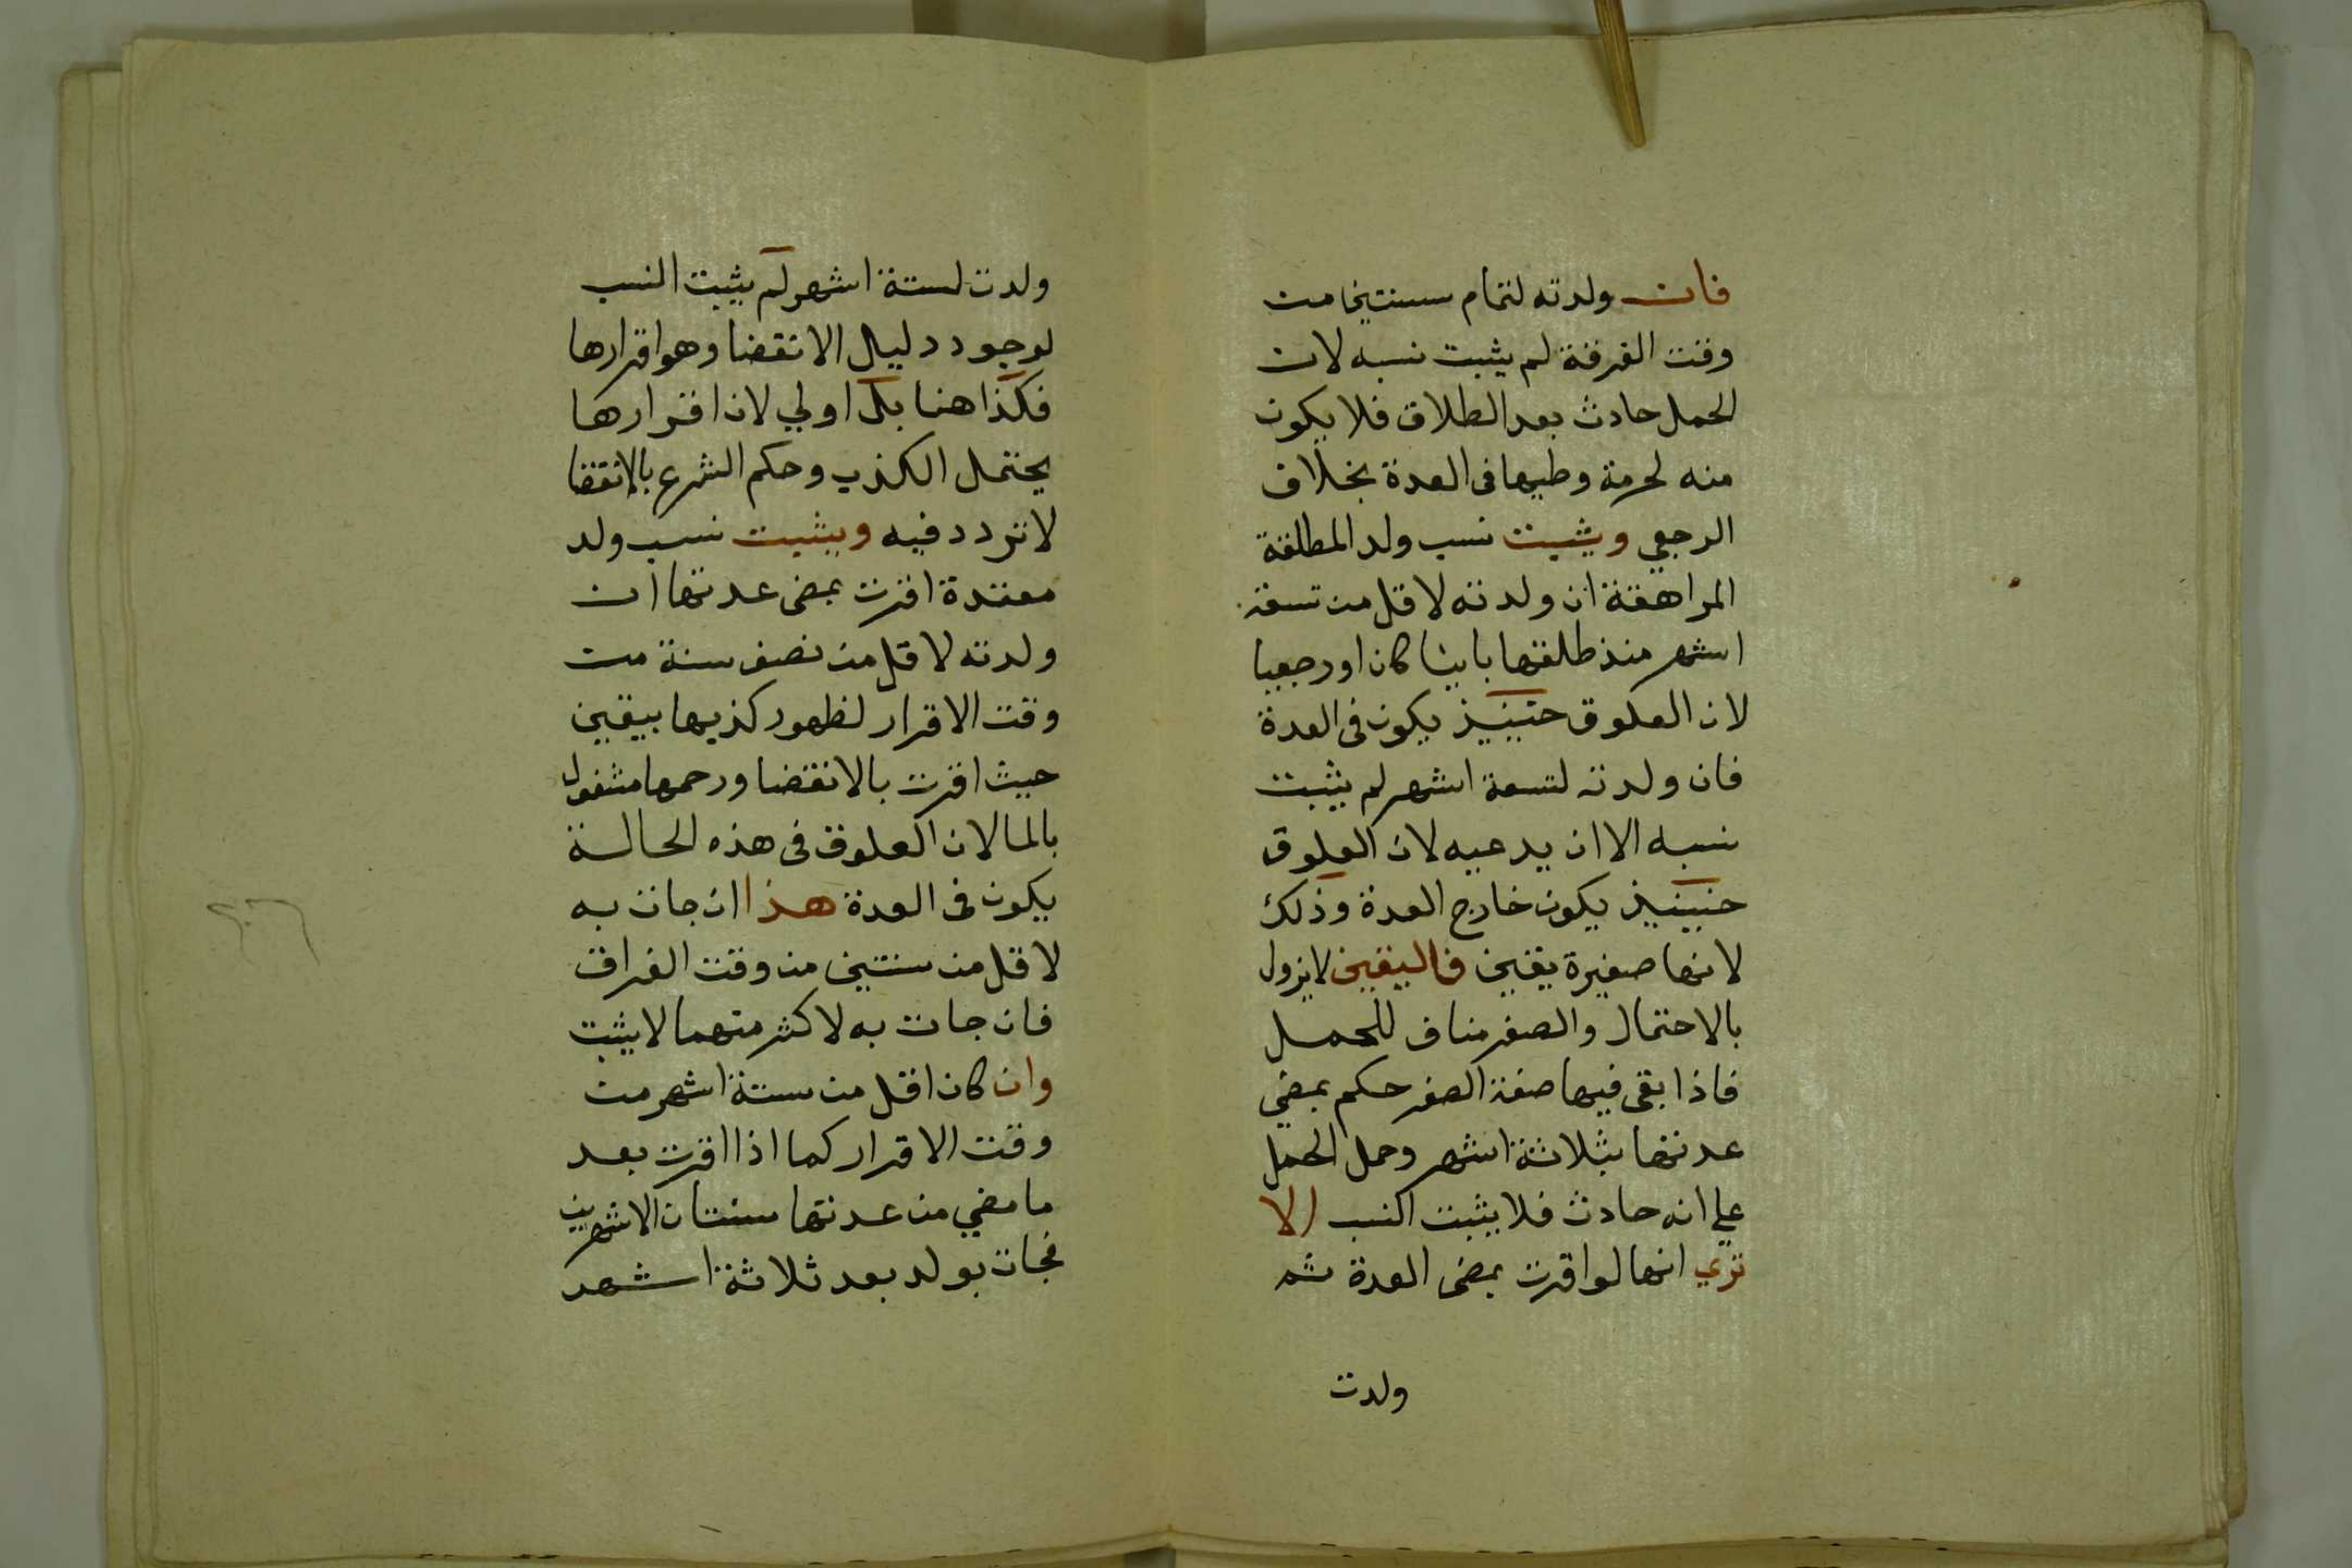 فان ولدته لتمام سنتين من
وقت الفرقة لم يثبت نسبه لان
الحمل حادث بعد الطلاق فلا يكون
منه لحرمة وطيها في العدة بخلاف
الرجعي ويثبت نسب ولد المطلقة
المراهقة ان ولدته لاقل من تسعة
اشهر منذ طلقها باينا كان او رجعيا
لان العلوق حينيذ يكون في العدة
فان ولدته لتسعة اشهر لم يثبت
نسبه الا ان يدعيه لان العلوق
حينيذ يكون خارج العدة وذلك
لانها صغيرة يقين فاليقين لا يزول
بالاحتمال والصغر مناف للحمل
فاذا بقى فيها صفة الصغر حكم بمضي
عدتها بثلاثة اشهر وحمل الحمل
علي انه حادث فلا يثبت النسب الا
تري انها لو اقرت بمضى العدة ثم
ولدت
ولدت لستة اشهر لم يثبت النسب
لوجود دليل الانقضا وهو اقرارها
فكذا هنا بل اولي لان اقرارها
يحتمل الكذب وحكم الشرع بالانقضا
لا تردد فيه ويثبت نسب ولد
معتدة اقرت بمضى عدتها ان
ولدته لاقل من نصف سنة من
وقت الاقرار لظهور كذبها بيقين
حيث اقرت بالانقضا ورحمها مشغول
بالما لان العلوق في هذه الحالة
يكون في العدة هذا ان جات به
لاقل من سنتين من وقت الفراق
فان جات به لاكثر منهما لا يثبت
وان كان اقل من ستة اشهر من
وقت الاقرار كما اذا اقرت بعد
ما مضي من عدتها سنتان الا شهرين
فجات بولد بعد ثلاثة اشهر